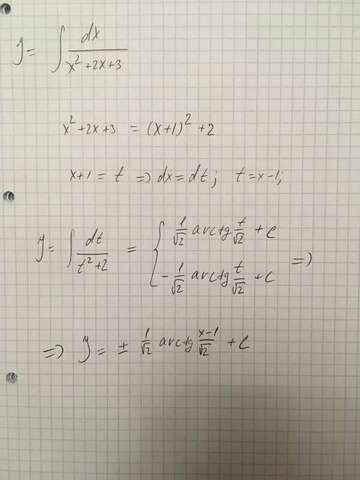 y = ∫ dx / (x² + 2x + 3)
x² + 2x + 3 = (x+1)² + 2
x+1 = t ⇒ dx = dt; t = x-1;
y = ∫ dt / (t² + 2) = { 1/√2 arctg t/√2 + C
- 1/√2 arctg t/√2 + C ⇒
⇒ y = ± 1/√2 arctg (x-1)/√2 + C